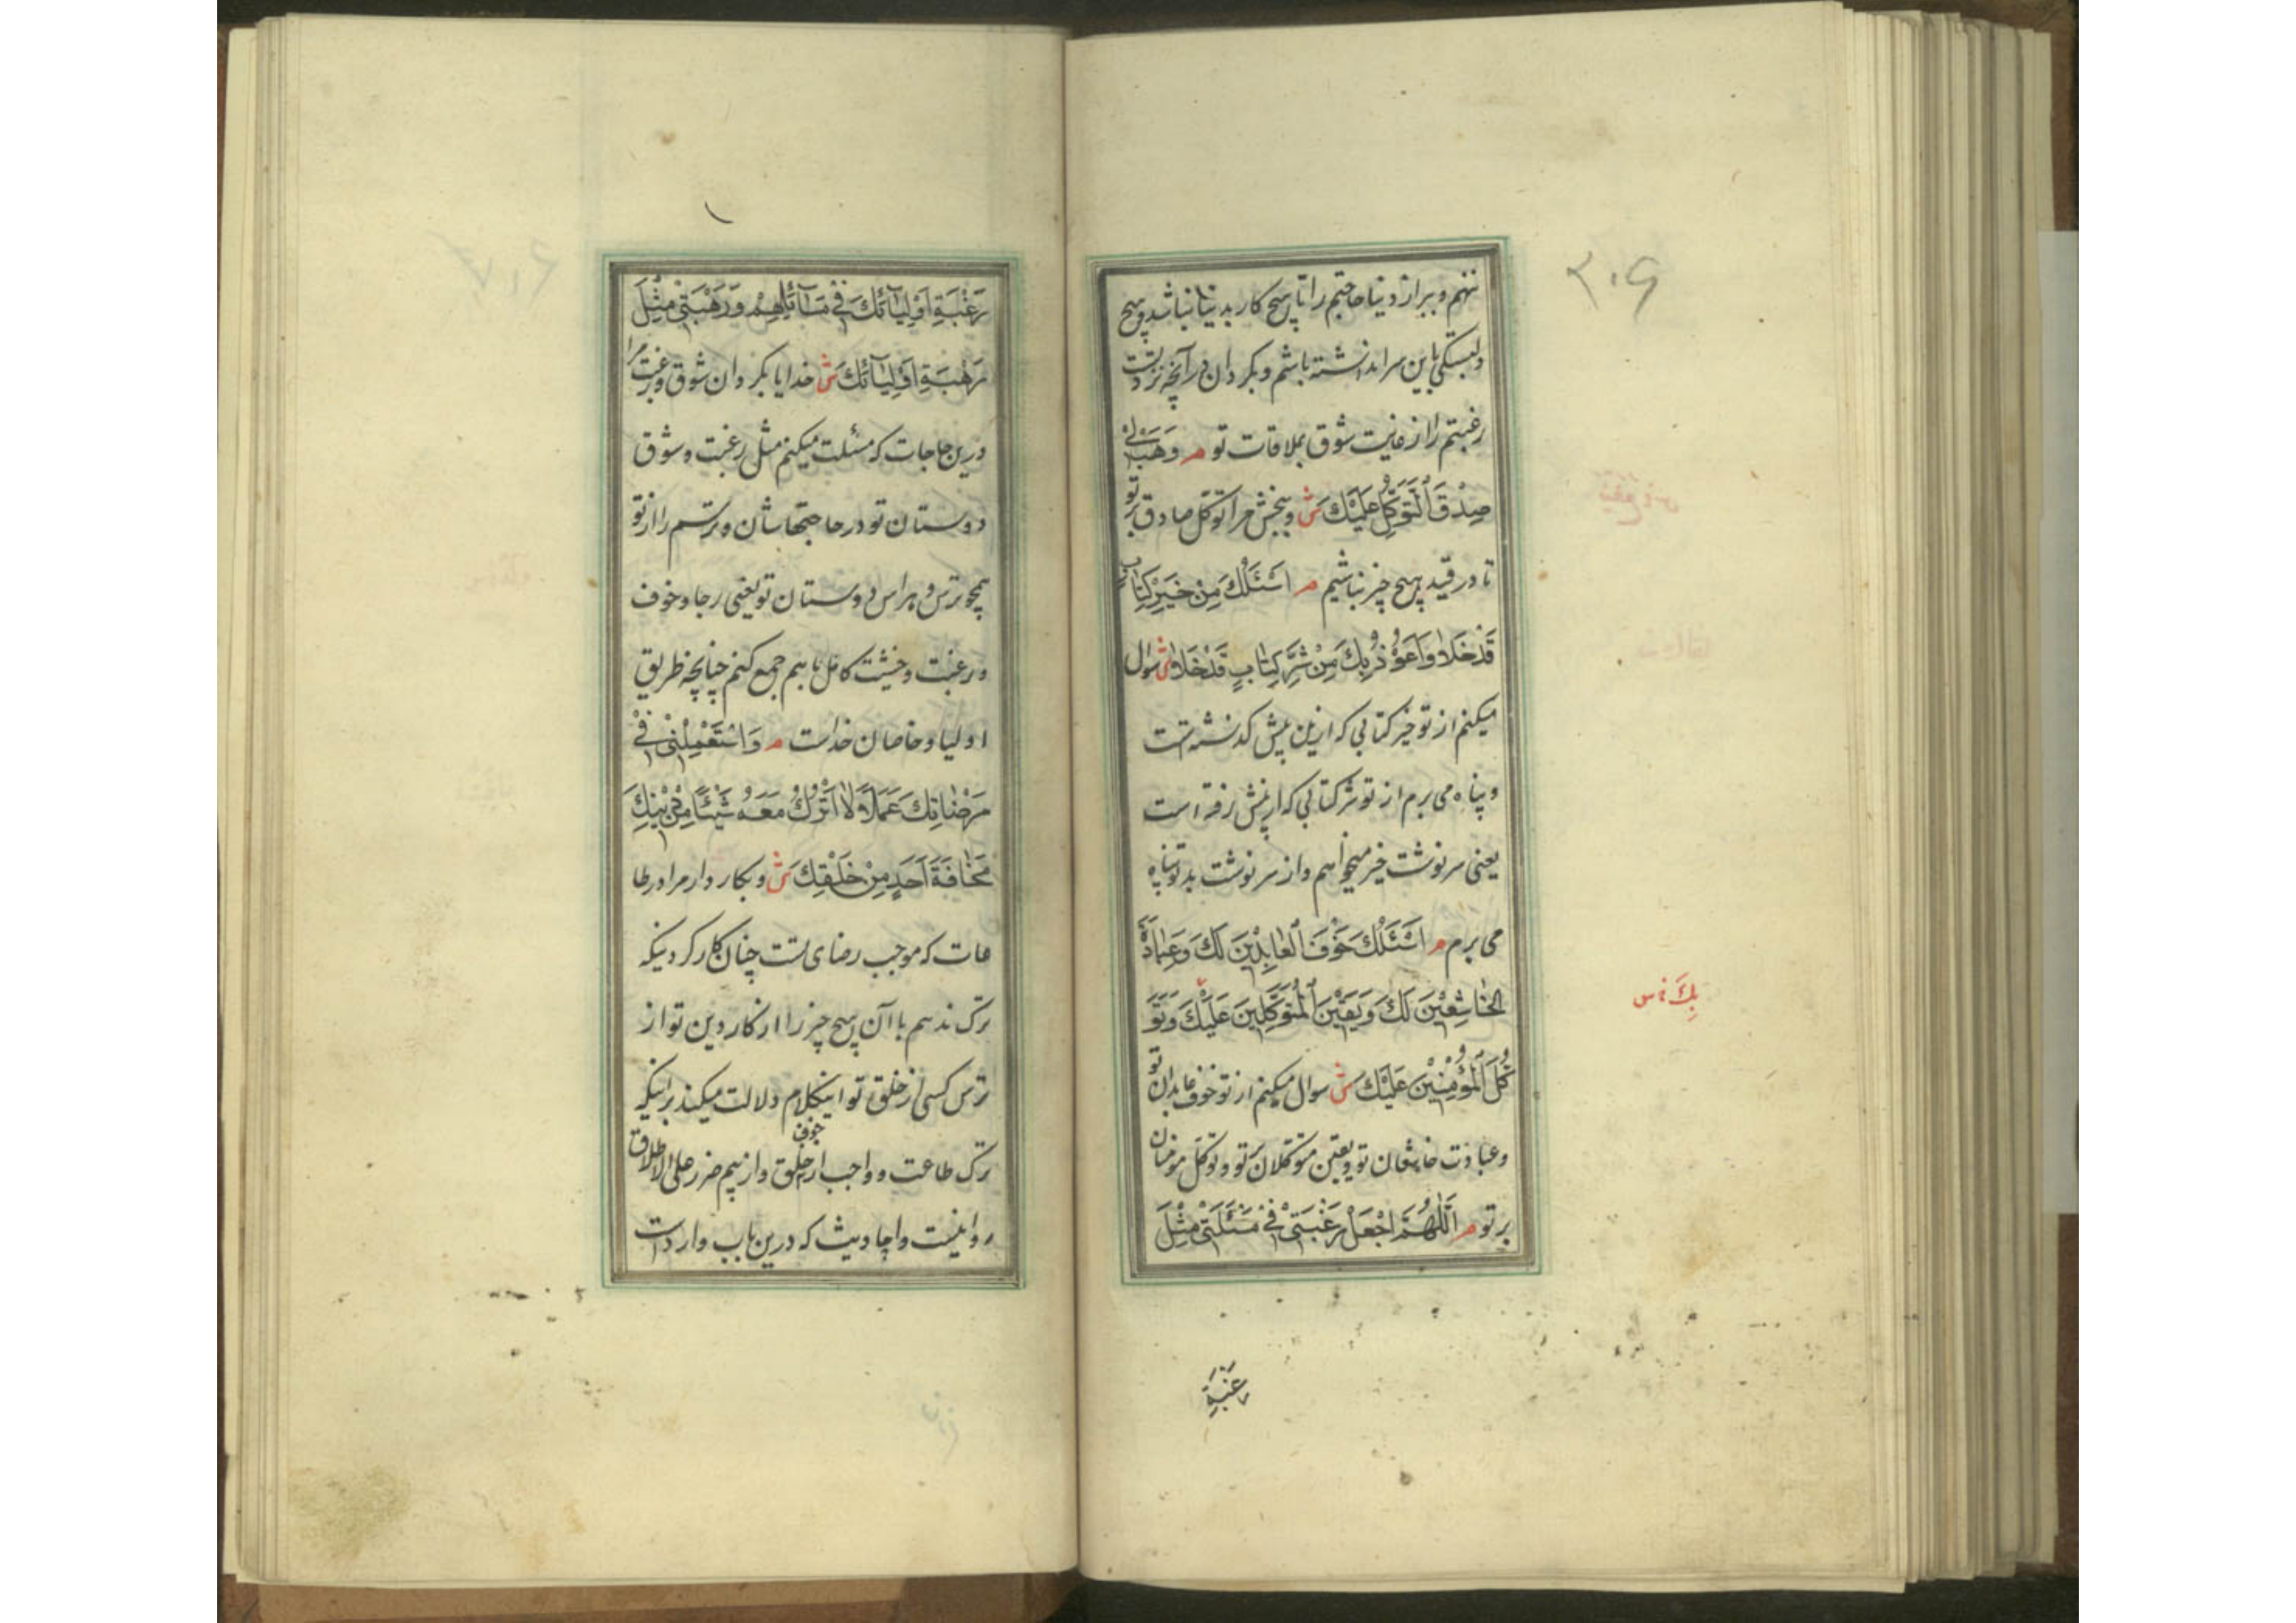 ۳۰۶
ننهم و ببر از دنیا حاجتم را تا هیچ کار بدنیا نباشد و هیچ
دلبستگی باین سرا نداشته باشم و بگردان در آنچه نزد تست
رغبتم را از غایت شوق بملاقات تو م وَهَبْ لِی
صِدْقَ اَلتَّوَكُّلِ عَلَیْكَ ش و ببخش مرا توکل صادق بر تو
تا در قید هیچ چیز نباشیم م اَسْئَلُكَ مِنْ خَیْرِ كِتٰابٍ
قَدْ خَلاٰ وَ اَعُوْذُ بِكَ مِنْ شَرِّ كِتٰابٍ قَدْ خَلاٰ ش سوال
میکنم از تو خیر کتابی که ازین پیش گذشته است
و پناه می برم از تو شر کتابی که ازپیش رفته است
یعنی سرنوشت خیر میخواهم و از سرنوشت بد بتو پناه
می برم م اَسْئَلُكَ خَوْفَ اَلْعٰابِدِیْنَ لَكَ وَ عِبٰادَةَ
الْخٰاشِعِیْنَ لَكَ وَ یَقِیْنَ اَلْمُتَوَكِّلِیْنَ عَلَیْكَ وَ تَوَ
بِكَ
كُّلَ اَلْمُؤْمِنِیْنَ عَلَیْكَ ش سوال میکنم از تو خوف عابدان تو
و عبادت خاشعان تو و یقین متوکلان بر تو و توکل مومنان
بر تو م اَللّٰهُمَّ اجْعَلْ رَغْبَتِیْ فِیْ مَسْئَلَتِیْ مِثْلَ
رَغْبَةِ
رَغْبَةِ اَوْلِیٰآئِكَ فِیْ مَسٰآئِلِهِمْ وَ رَهْبَتِیْ مِثْلَ
رَهْبَةِ اَوْلِیٰآئِكَ ش خدایا بگردان شوق و رغبت مرا
درین حاجات که مسئلت میکنم مثل رغبت و شوق
دوستان تو در حاجتهاشان و ترسم را از تو
همچو ترس و هراس دوستان تو یعنی رجا و خوف
و رغبت و خشیت کامل با هم جمع کنم چنانچه طریق
اولیا و خاصان خداست م وَ اسْتَعْمِلْنِیْ فِیْ
مَرْضٰاتِكَ عَمَلًا لاٰ اَتْرُكُ مَعَهُ شَیْئًا مِنْ دِیْنِكَ
مَخٰافَةَ اَحَدٍ مِنْ خَلْقِكَ ش و بکار دار مرا در طا
عات که موجب رضای تست چنان کارکردنیکه
ترک ندهم با آن هیچ چیز را از کار دین تو از
ترس کسی از خلق تو اینکلام دلالت میکند براینکه
ترک طاعت و واجب از خوف خلق و از بیم ضرر علی الاطلاق
روا نیست و احادیث که درین باب وارد است